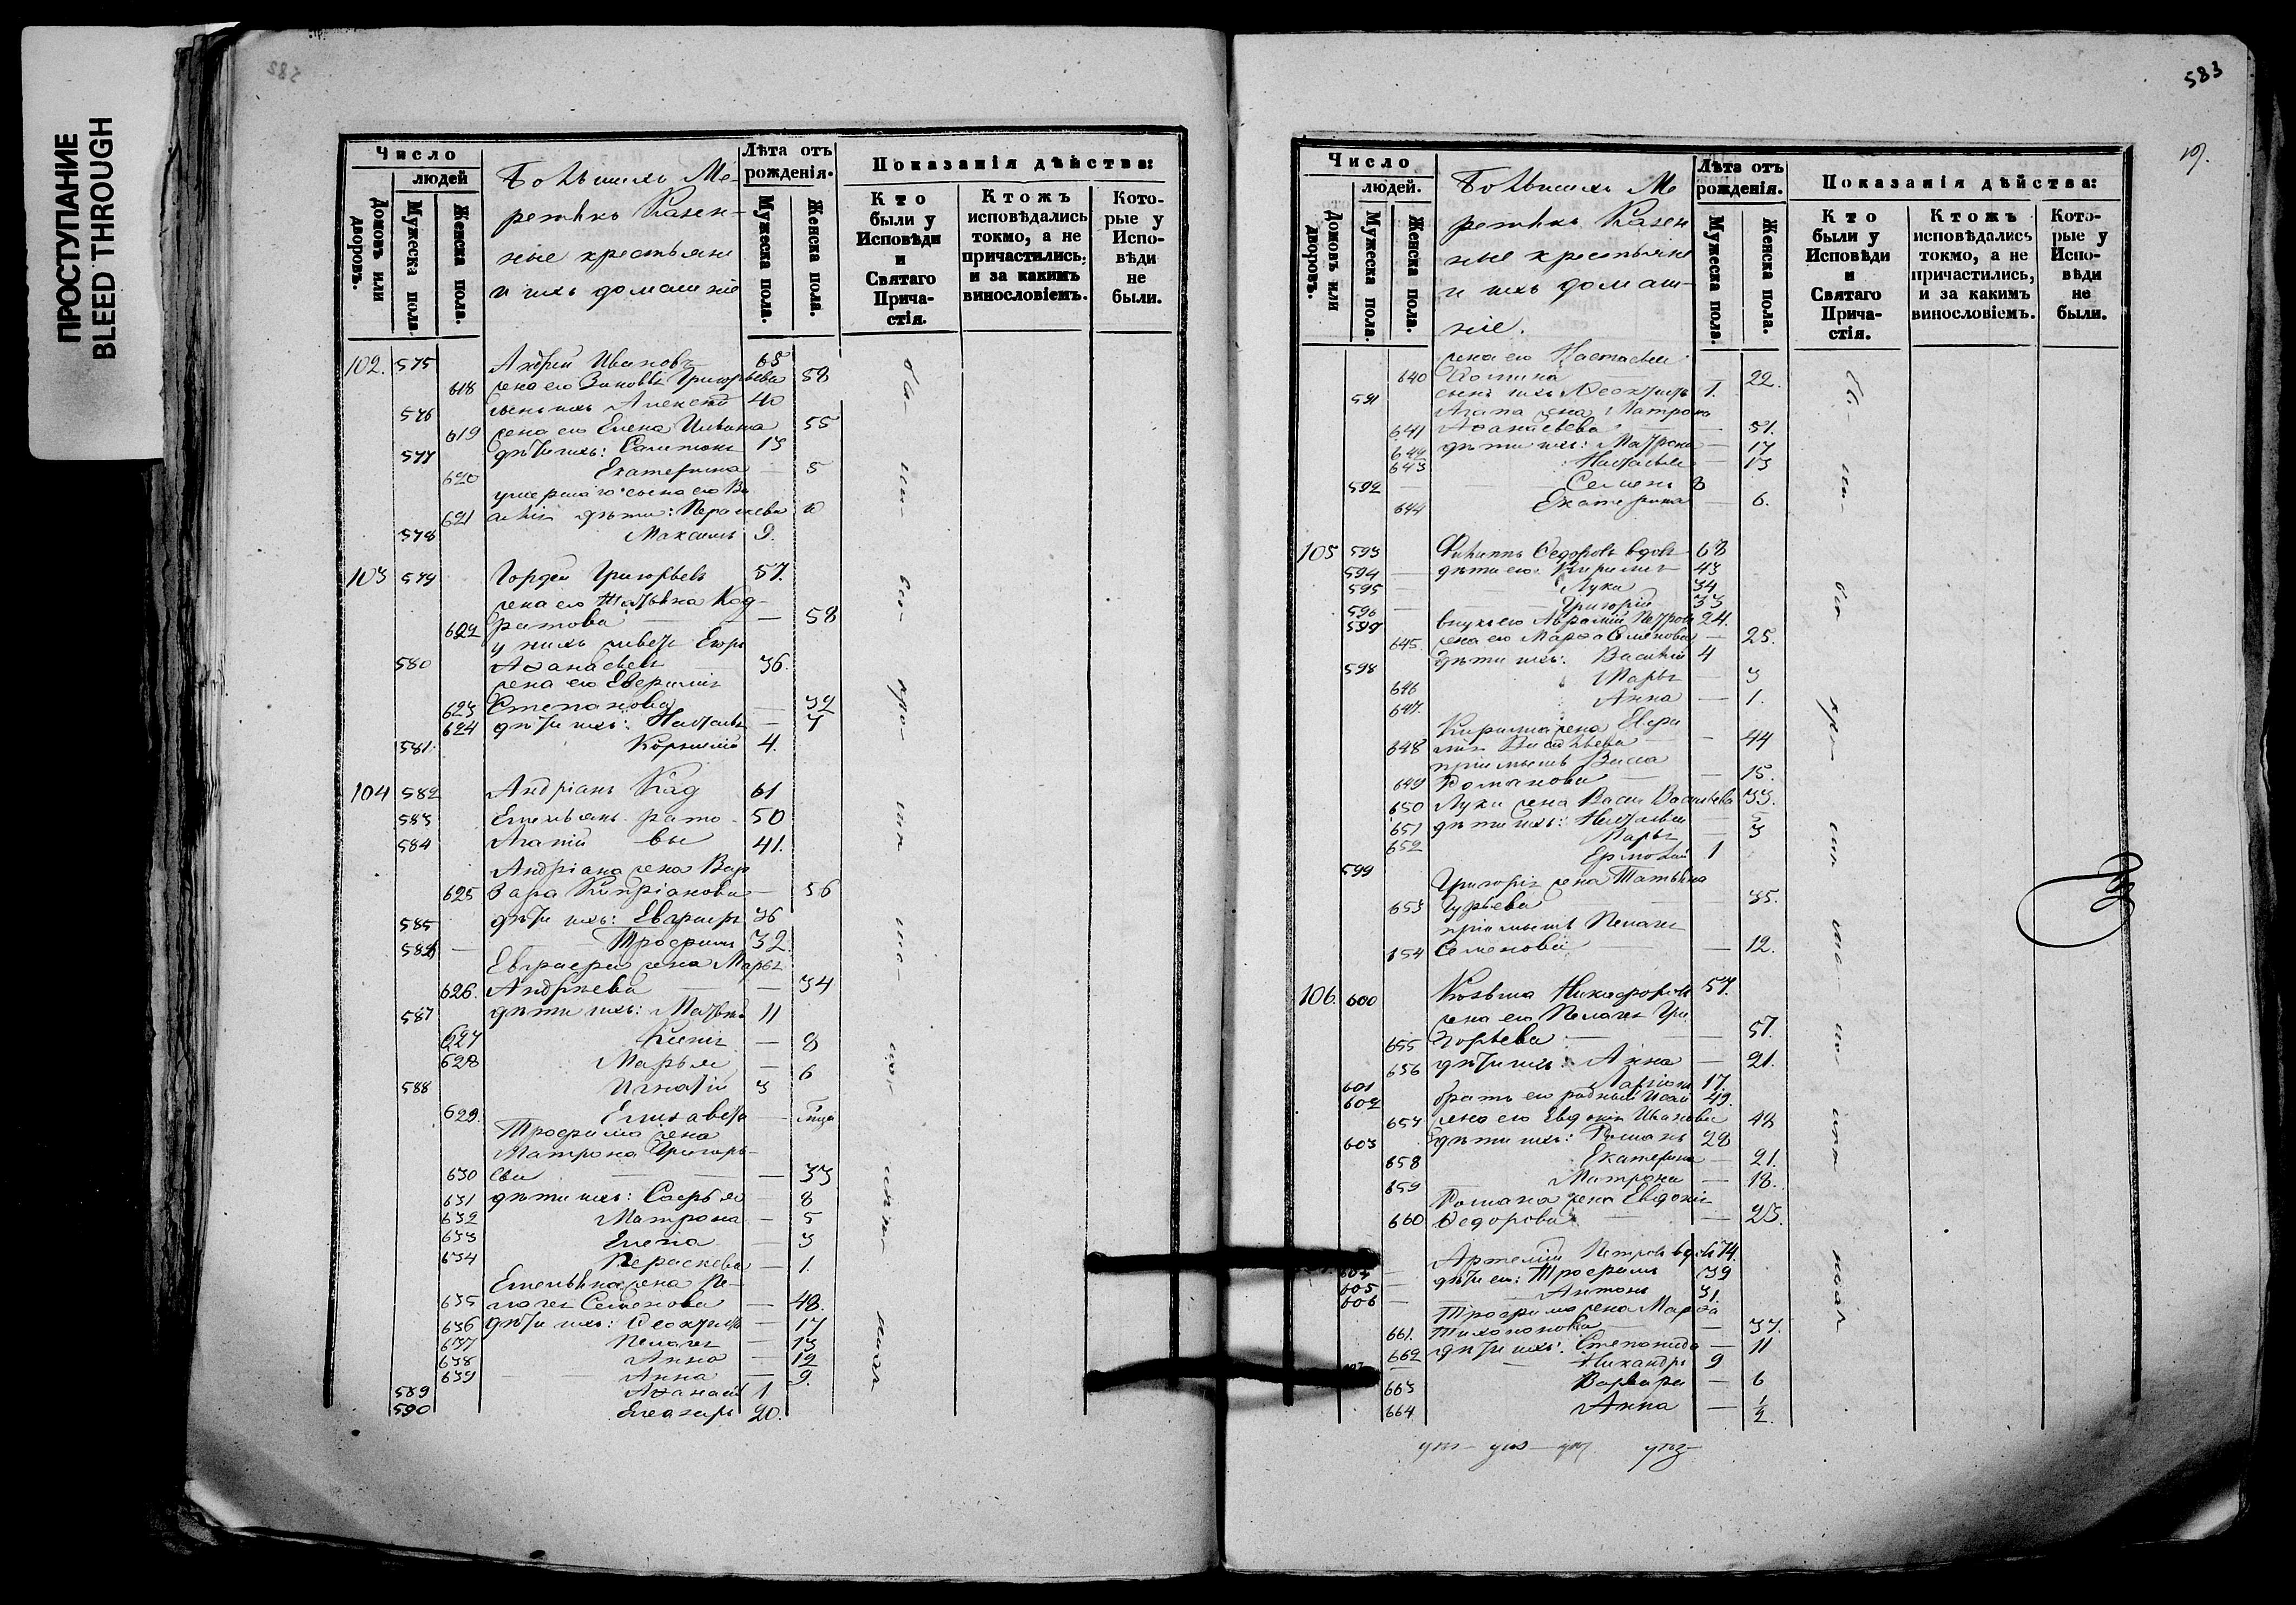 ПРОСТУПАНИЕ
BLEED THROUGH
582
Число
людей
Домовъ или дворовъ.
Мужеска пола.
Женска пола.
Большихъ Ме-
ретякъ Казен-
ные крестьяне
и ихъ домашніе
Лѣта отъ рожденія.
Мужеска пола.
Женска пола.
Показанія дѣйства:
Кто были у Исповѣди и Святаго Прича-стія.
Ктожъ исповѣдались токмо, а не причастились, и за какимъ винословіемъ.
Кото-рые у Испо-вѣди не были.
102. 575 Андрей Ивановъ 65
618 жена его Зиновья Григорьева 58
576 сынъ ихъ Алексѣй 40
619 жена его Елена Ильина 55
577 дѣти ихъ: Самсонъ 13
620 Екатерина 5
умершаго сына его Ва
621 силія дѣти: Параскева 10
578 Максимъ 9.
103 579 Гордей Григорьевъ 57.
жена его Татьяна Код-
622 ратова — 58
у нихъ живетъ Егоръ
580 Аѳанасьевъ 36.
жена его Евфимія
623 Степанова — 32
624 дѣти ихъ: Настасья — 7
581. Корнилій 4.
104 582 Андріанъ Код 61
583 Емельянъ рато- 50
584 Агапій вы 41.
Андріана жена Вар
625 вара Кипріанова — 56
585 дѣти ихъ: Евграфъ 36
586 — Трофимъ 32.
Евграфа жена Марья
626. Андреева — 34
587 дѣти ихъ: Матвѣй 11
627 — 8
628 Марья — 6
588 Игнатій 3
629. Елизавета —
Трофима жена
Матрона Григорь-
630 ева — 33
631 дѣти ихъ: Софья — 8
632 Матрона — 5
633 Елена — 3
634 Параскева — 1.
Емельяна жена Пе-
635 лагея Семенова — 48.
636 дѣти ихъ: — 17
637 Пелагея — 13
638 Анна — 12
639 Анна — 9.
589 Аѳанасій 1
590 Елеазаръ 20.
583
Число
людей.
Домовъ или дворовъ.
Мужеска пола.
Женска пола.
Большихъ Ме
ретякъ Казен
ные крестьяне
и ихъ домаш-
ніе.
Лѣта отъ рожденія.
Мужеска пола.
Женска пола.
Показанія дѣйства:
Кто были у Исповѣди и Святаго Прича-стія.
Ктожъ исповѣдались токмо, а не причастились, и за какимъ винословіемъ.
Кото-рые у Испо-вѣди не были.
жена его Настасья
640 Фомина — 22.
591 сынъ ихъ 1.
Агапа жена Матрона
641 Аѳанасьева — 51.
642 дѣти ихъ: Матрона — 17
643 Настасья — 13
592 Семенъ 8
644 Екатерина — 6.
105 593 Филиппъ Ѳедоровъ вдовъ 68
594 дѣти его: Кирилъ 43
595 Лука 34
596 Григорій 33
597 внукъ его Авраамій Петровъ 24.
645. жена его Марѳа Семенова — 25.
598 дѣти ихъ: Василій 4
646 Марья — 3
647. Анна — 1.
Кирила жена Евфи
648 мія Васильева — 44
пріемышъ Васса
649 Романова — 15.
650 Луки жена Васса Васильева 33.
651 дѣти ихъ: Настасья — 5
652 Марья — 3
599 Ермолай 1
Григорія жена Татьяна
653 Гурьева 35.
пріемышъ Пелагея
654 Семенова — 12.
106. 600 Козьма Никифоровъ 57.
жена его Пелагея Гри
655 горьева — 57.
656 дѣти ихъ: Анна — 21.
601 Ларіонъ 17.
602 братъ его родный Исай 49.
657 жена его Евдокія Иванова 48
603 дѣти ихъ: Романъ 28
658 Екатерина — 21.
659 Матрона — 18.
Романа жена Евдокія
660 Ѳедорова — 23.
604 Артемій Петровъ вдовъ 74.
605 дѣти его: Трофимъ 39
606 Антонъ 31.
Трофима жена Марѳа
661. Тихонова — 37.
662 дѣти ихъ: Степанида — 11
Никандръ 9
663 Варвара — 6
664 Анна — 1/2